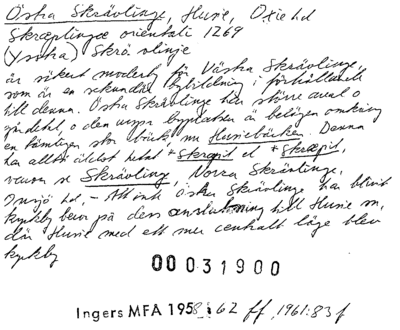 Östra Skrävlinge, Husie, Oxie hd
Skræplinge orientali 1269
(Ystra) Skrä vlinje
är säkert moderby för Västra Skrävlinge,
som är en sekundär bybildning i förhållande
till denna. Östra Skrävlinge har större antal
gårdetal, o den urspr byplatsen är belägen omkring
en tämligen stor bäck, nu Husiebäcken. Denna
har alltså äldst hetat *Skræpit el *Skræpil,
varom se Skrävlinge, Norra Skrävlinge,
hd. – Att inte Östra Skrävlinge har blivit
kyrkby beror på dess anslutning till Husie sn,
där Husie med ett mer centralt läge blev
kyrkby
00 031900
Ingers MFA 1958 : 62 ff, 1961:83 f